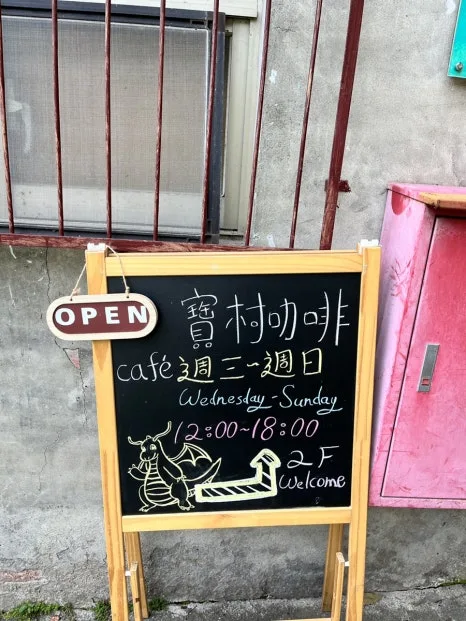 OPEN
寶村咖啡
café 週三~週日
Wednesday-Sunday
12:00~18:00
2F
Welcome